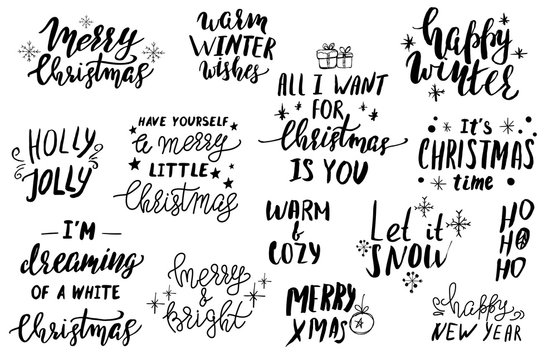 Merry
Christmas
warm
WINTER
wishes
ALL I WANT
FOR
Christmas
IS YOU
happy
winter
HOLLY
JOLLY
HAVE YOURSELF
a merry
LITTLE
Christmas
It's
CHRISTMAS
time
I'M
dreaming
OF A WHITE
Christmas
merry
&
bright
WARM
&
COZY
Let it
SNOW
HO
HO
HO
MERRY
XMAS
happy
NEW YEAR